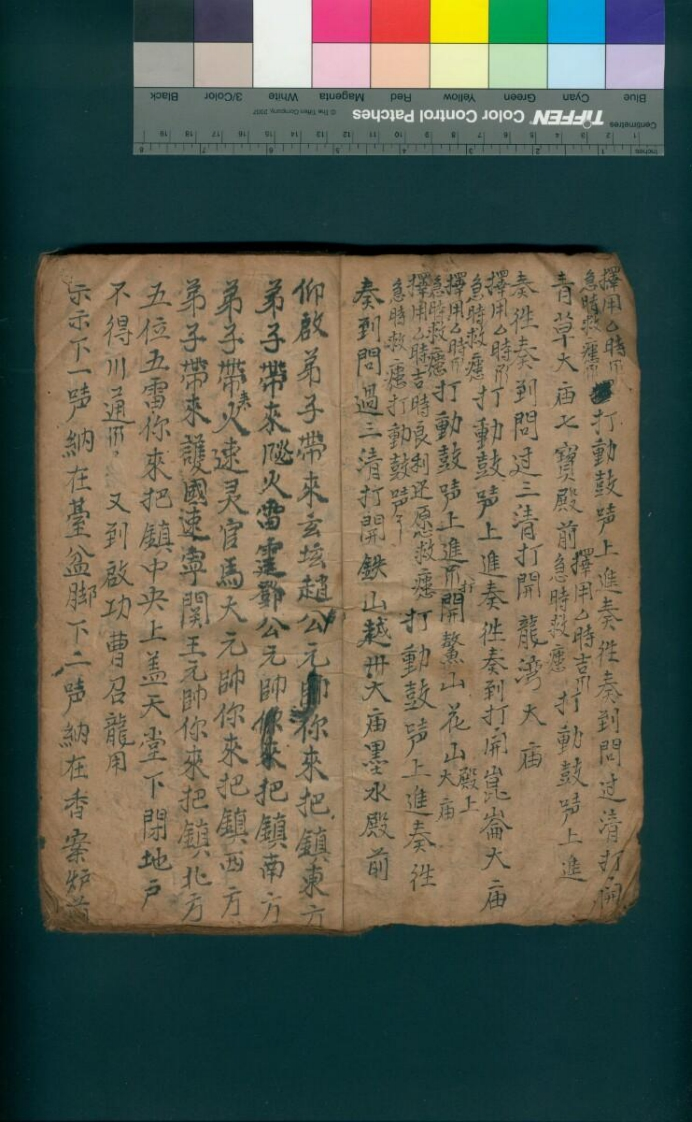 擇用乙時
急時救
打動鼓声上進奏徃奏到問过清打開
青草大庙七寶殿前
擇用乙時吉
急時救
打動鼓声上進
奏徃奏到問过三清打開龍湾大庙
擇用乙時
急時救
打動鼓声上進奏徃奏到打開崑崙大庙
擇用乙時
急時救
打動鼓声上進
開鰲山花山
殿上
大庙
擇用乙時吉時良利还愿救
打動鼓声上進奏徃
急時救
打動鼓声
奏到問過三清打開鉄山越州大庙墨水殿前
仰啟弟子帶來玄坛趙公元帥你來把鎮東方
弟子帶來 火雷霆鄧公元帥你來把鎮南方
弟子帶來火速灵官馬大元帥你來把鎮西方
弟子帶來護國速寧関王元帥你來把鎮北方
五位五雷你來把鎮中央上盖天堂下閉地户
不得川通 又到啟功曹召龍用
示示下一声納在臺盆脚下二声納在香案炉前
Blue
Cyan
Green
Yellow
Red
Magenta
White
3/Color
Black
TIFFEN Color Control Patches
© The Tiffen Company, 2007
Centimetres
Inches